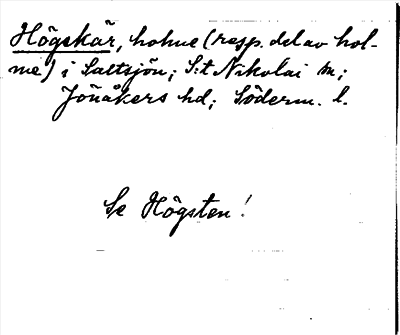 Högskär, holme (resp. del av hol-
me) i Saltsjön; S:t Nikolai sn;
Jönåkers hd; Söderm. l.
Se Högsten!